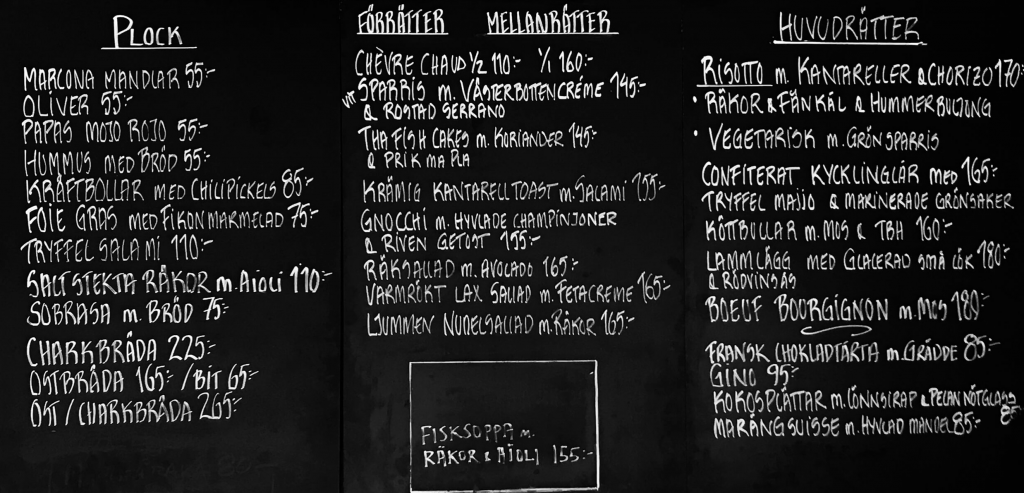 PLOCK
MARCONA MANDLAR 55:-
OLIVER 55:-
PAPAS MOJO ROJO 55:-
HUMMUS MED BRÖD 55:-
KRÄFTBOLLAR MED CHILIPICKELS 85:-
FOIE GRAS MED FIKONMARMELAD 75:-
TRYFFEL SALAMI 110:-
SALTSTEKTA RÄKOR M. AIOLI 110:-
SOBRASA M. BRÖD 75:-
CHARKBRÄDA 225:-
OSTBRÄDA 165:- / BIT 65:-
OST / CHARKBRÄDA 265:-
FÖRRÄTTER MELLANRÄTTER
CHÈVRE CHAUD 1/2 110:- 1/1 160:-
VIT SPARRIS M. VÄSTERBOTTENCRÉME 145:-
& ROSTAD SERRANO
THA FISH CAKES M. KORIANDER 145:-
& PRIK MA PLA
KRÄMIG KANTARELLTOAST M. SALAMI 155:-
GNOCCHI M. HYVLADE CHAMPINJONER
& RIVEN GETOST 155:-
RÄKSALLAD M. AVOCADO 165:-
VARMRÖKT LAX SALLAD M. FETACREME 165:-
LJUMMEN NUDELSALLAD M. RÄKOR 165:-
FISKSOPPA M.
RÄKOR & AIOLI 155:-
HUVUDRÄTTER
RISOTTO M. KANTARELLER & CHORIZO 170:-
• RÄKOR & FÄNKÅL & HUMMERBULJONG
• VEGETARISK M. GRÖNSPARRIS
CONFITERAT KYCKLINGLÅR MED 165:-
TRYFFEL MAJJO & MARINERADE GRÖNSAKER
KÖTTBULLAR M. MOS & TBH 160:-
LAMMLÄGG MED GLACERAD SMÅ LÖK 180:-
& RÖDVINSÅS
BOEUF BOURGIGNON M. MOS 180:-
FRANSK CHOKLADTÅRTA M. GRÄDDE 85:-
GINO 95:-
KOKOSPLÄTTAR M. LÖNNSIRAP & PECAN NÖTGLASS 85:-
MARÄNGSUISSE M. HYVLAD MANDEL 85:-